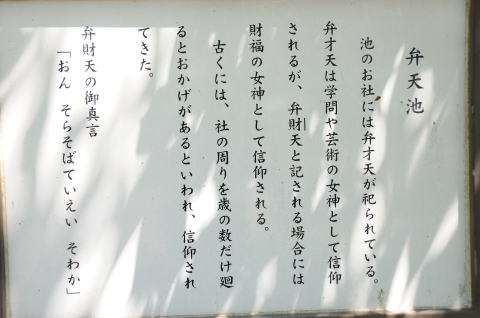 弁天池
池のお社には弁才天が祀られている。
弁才天は学問や芸術の女神として信仰
されるが、弁財天と記される場合には
財福の女神として信仰される。
古くには、社の周りを歳の数だけ廻
るとおかげがあるといわれ、信仰され
てきた。
弁財天の御真言
「おん そらそばていえい そわか」